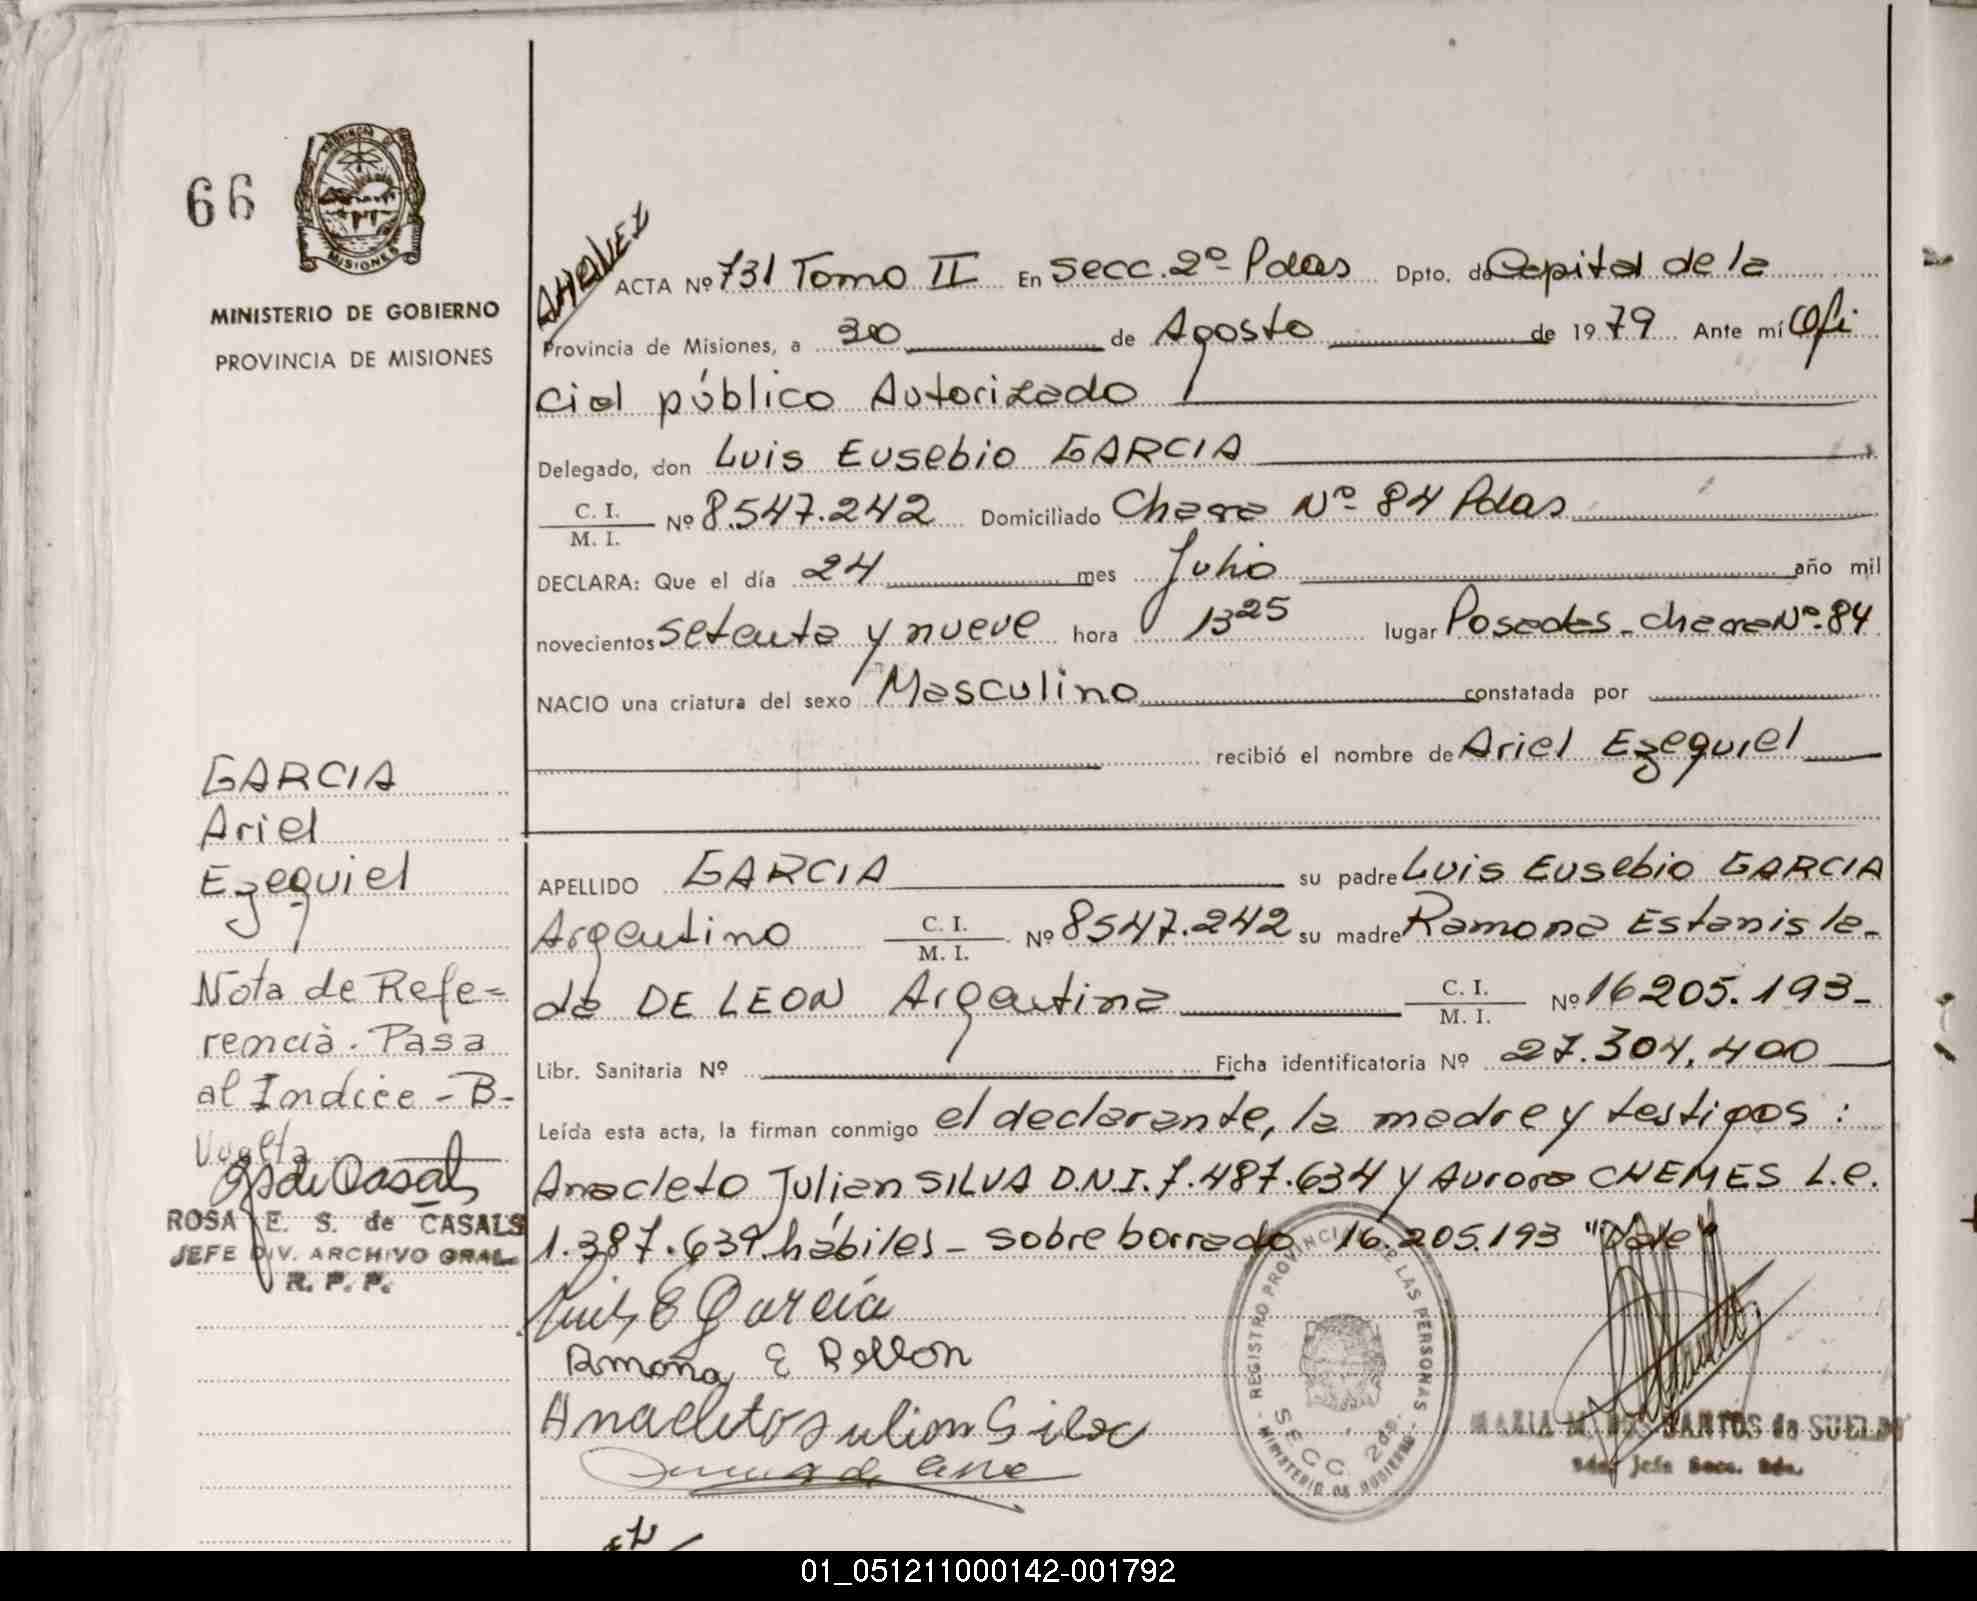 66
PROVINCIA DE
MISIONES
MINISTERIO DE GOBIERNO
PROVINCIA DE MISIONES
ACTA Nº 731 Tomo II En Secc. 2º Pdas Dpto. de Capital de la
Provincia de Misiones, a 30 de Agosto de 1979 Ante mí Ofi
cial público Autorizado
Delegado, don Luis Eusebio GARCIA
C. I.
M. I. Nº 8.547.242 Domiciliado Chacra Nº 84 Pdas
DECLARA: Que el día 24 mes Julio año mil
novecientos setenta y nueve hora 13 25 lugar Posadas - Chacra Nº 84
NACIO una criatura del sexo Masculino constatada por
recibió el nombre de Ariel Ezequiel
GARCIA
Ariel
Ezequiel
Nota de Refe=
rencia. Pasa
al Indice - B-
Vuelta
ROSA E. S. de CASALS
JEFE DIV. ARCHIVO GRAL
R. P. P.
APELLIDO GARCIA su padre Luis Eusebio GARCIA
Argentino C. I.
M. I. Nº 8547.242 su madre Ramona Estanisla-
da DE LEON Argentina C. I.
M. I. Nº 16205.193-
Libr. Sanitaria Nº Ficha identificatoria Nº 27.304.400
Leída esta acta, la firman conmigo el declarante, la madre y testigos:
Anacleto Julian SILVA D.N.I. 7.487.634 y Aurora CHEMES L.e.
1.387.639 hábiles - sobre borrado 16.205.193 "Vale"
Luis E Garcia
Ramona E
Anacleto Julian Silva
REGISTRO PROVINCIAL DE LAS PERSONAS
SECC. 2da.
MINISTERIO DE GOBIERNO
MARIA M. DOS SANTOS de SUELDO
Jefe Secc. 2da.
01_051211000142-001792